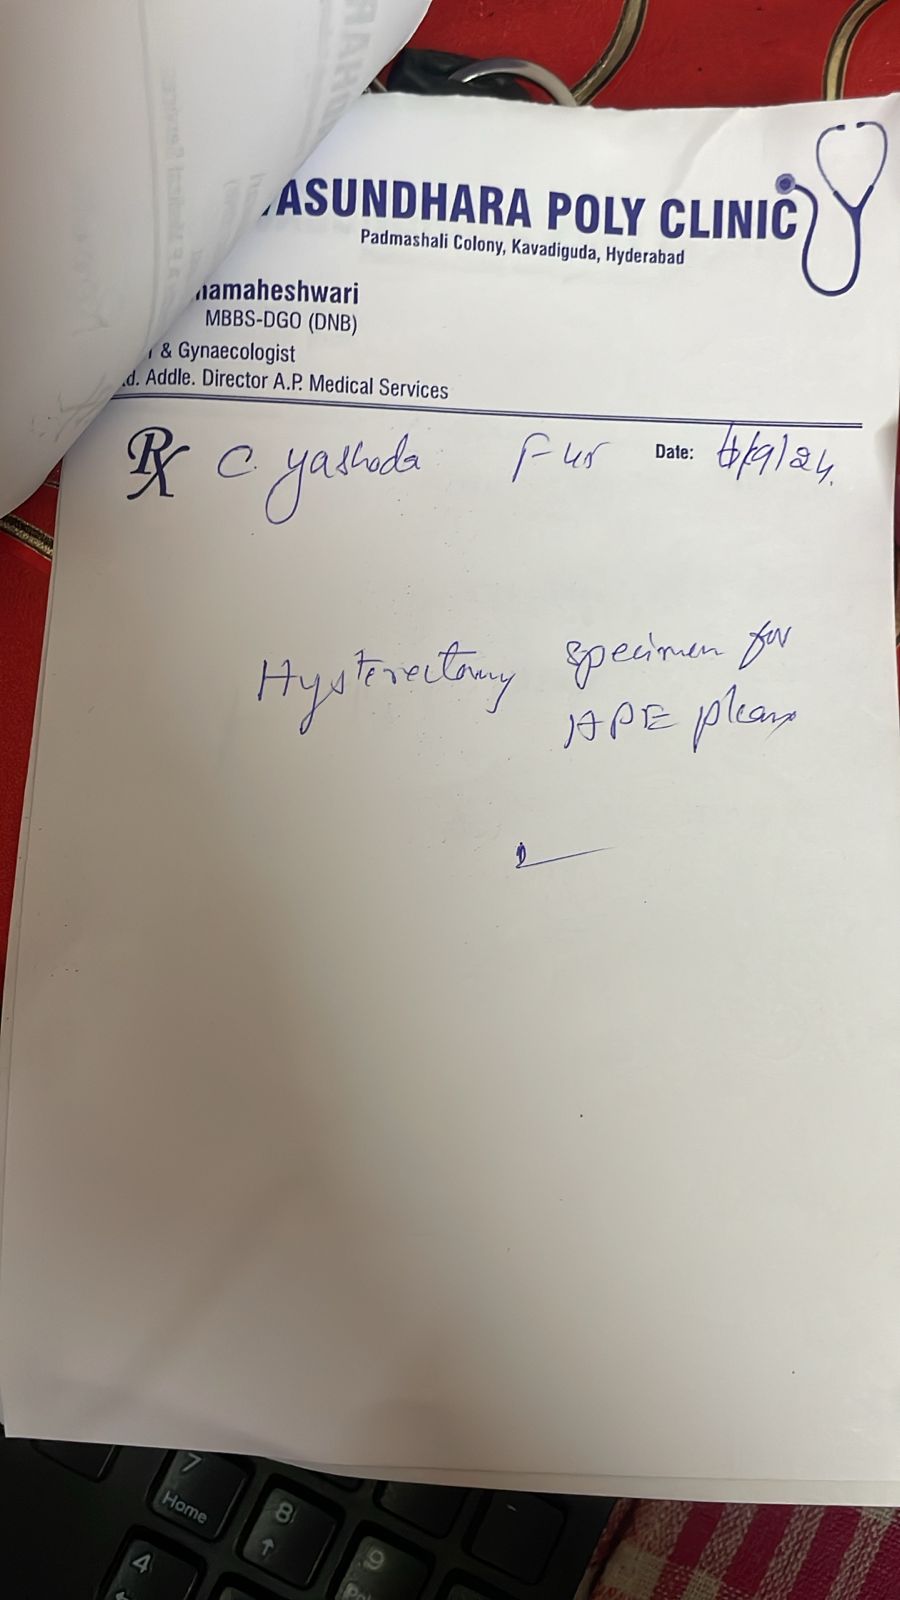 ASUNDHARA POLY CLINIC
Padmashali Colony, Kavadiguda, Hyderabad
amaheshwari
MBBS-DGO (DNB)
& Gynaecologist
d. Addle. Director A.P. Medical Services
Rx C. Yashoda F 45 Date: /9/24.
Hysterectomy specimen for
HPE please
7
Home
8
↑
9
4